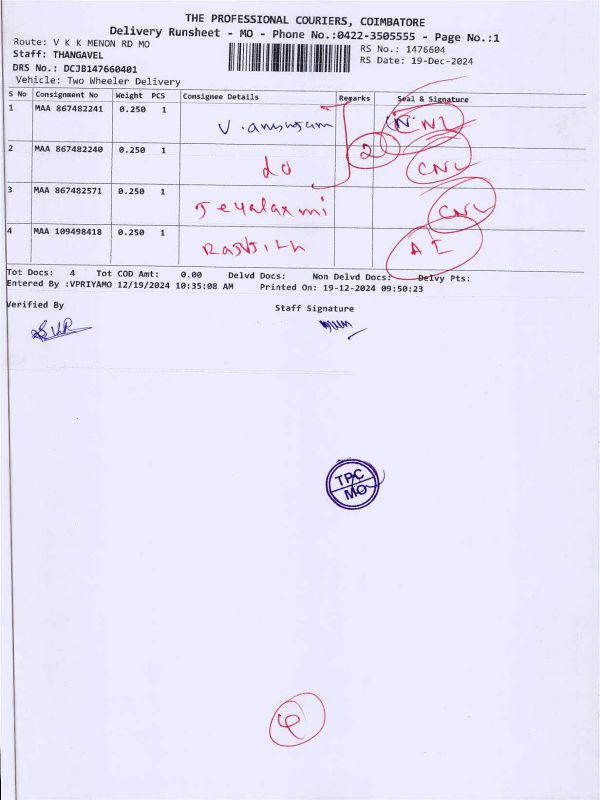 THE PROFESSIONAL COURIERS, COIMBATORE
Delivery Runsheet - MO - Phone No.:0422-3505555 - Page No.:1
Route: V K K MENON RD MO
RS No.: 1476604
Staff: THANGAVEL
RS Date: 19-Dec-2024
DRS No.: DCJB147660401
Vehicle: Two Wheeler Delivery
S No Consignment No Weight PCS Consignee Details Remarks Seal & Signature
1 MAA 867482241 0.250 1
2
2 MAA 867482240 0.250 1 do CNL
3 MAA 867482571 0.250 1 Jeyalaxmi CNL
4 MAA 109498418 0.250 1 AI
Tot Docs: 4 Tot COD Amt: 0.00 Delvd Docs: Non Delvd Docs: Delvy Pts:
Entered By :VPRIYAMO 12/19/2024 10:35:08 AM Printed On: 19-12-2024 09:50:23
Verified By
Staff Signature
TPC
MO